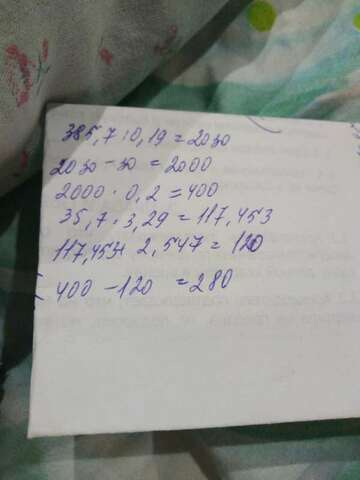 385,7 : 0,19 = 2030
2030 - 30 = 2000
2000 · 0,2 = 400
35,7 · 3,29 = 117,453
117,453 + 2,547 = 120
400 - 120 = 280